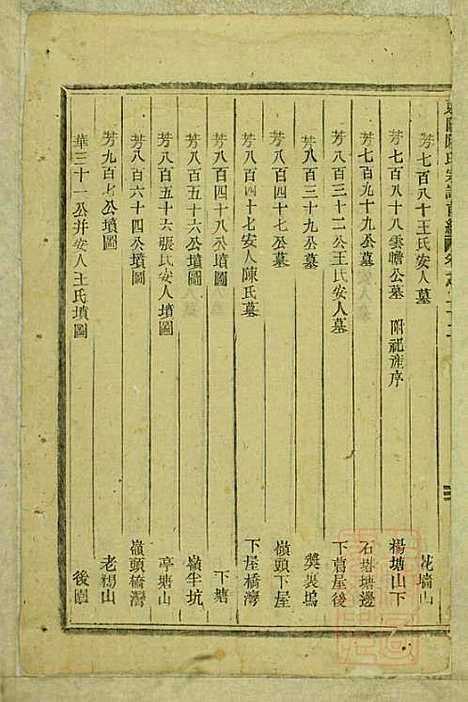 芳七百八十王氏安人墓 花墻山
芳七百八十八雲瞻公墓 附祀 序 楊塘山下
芳七百九十九安人墓 石塔塘邊
芳八百三十二公王氏安人墓 下葛屋後
芳八百三十九公墓 裏塢
芳八百四十七公墓 嶺頭下屋
芳八百四十七安人陳氏墓 下屋橋灣
芳八百四十八公墳圖 下塘
芳八百五十六公墳圖 嶺坐坑
芳八百五十六張氏安人墳圖 亭塘山
芳八百六十四公墳圖 嶺頭橋灣
芳九百七公墳圖 老楊山
華三十一公并安人王氏墳圖 後園